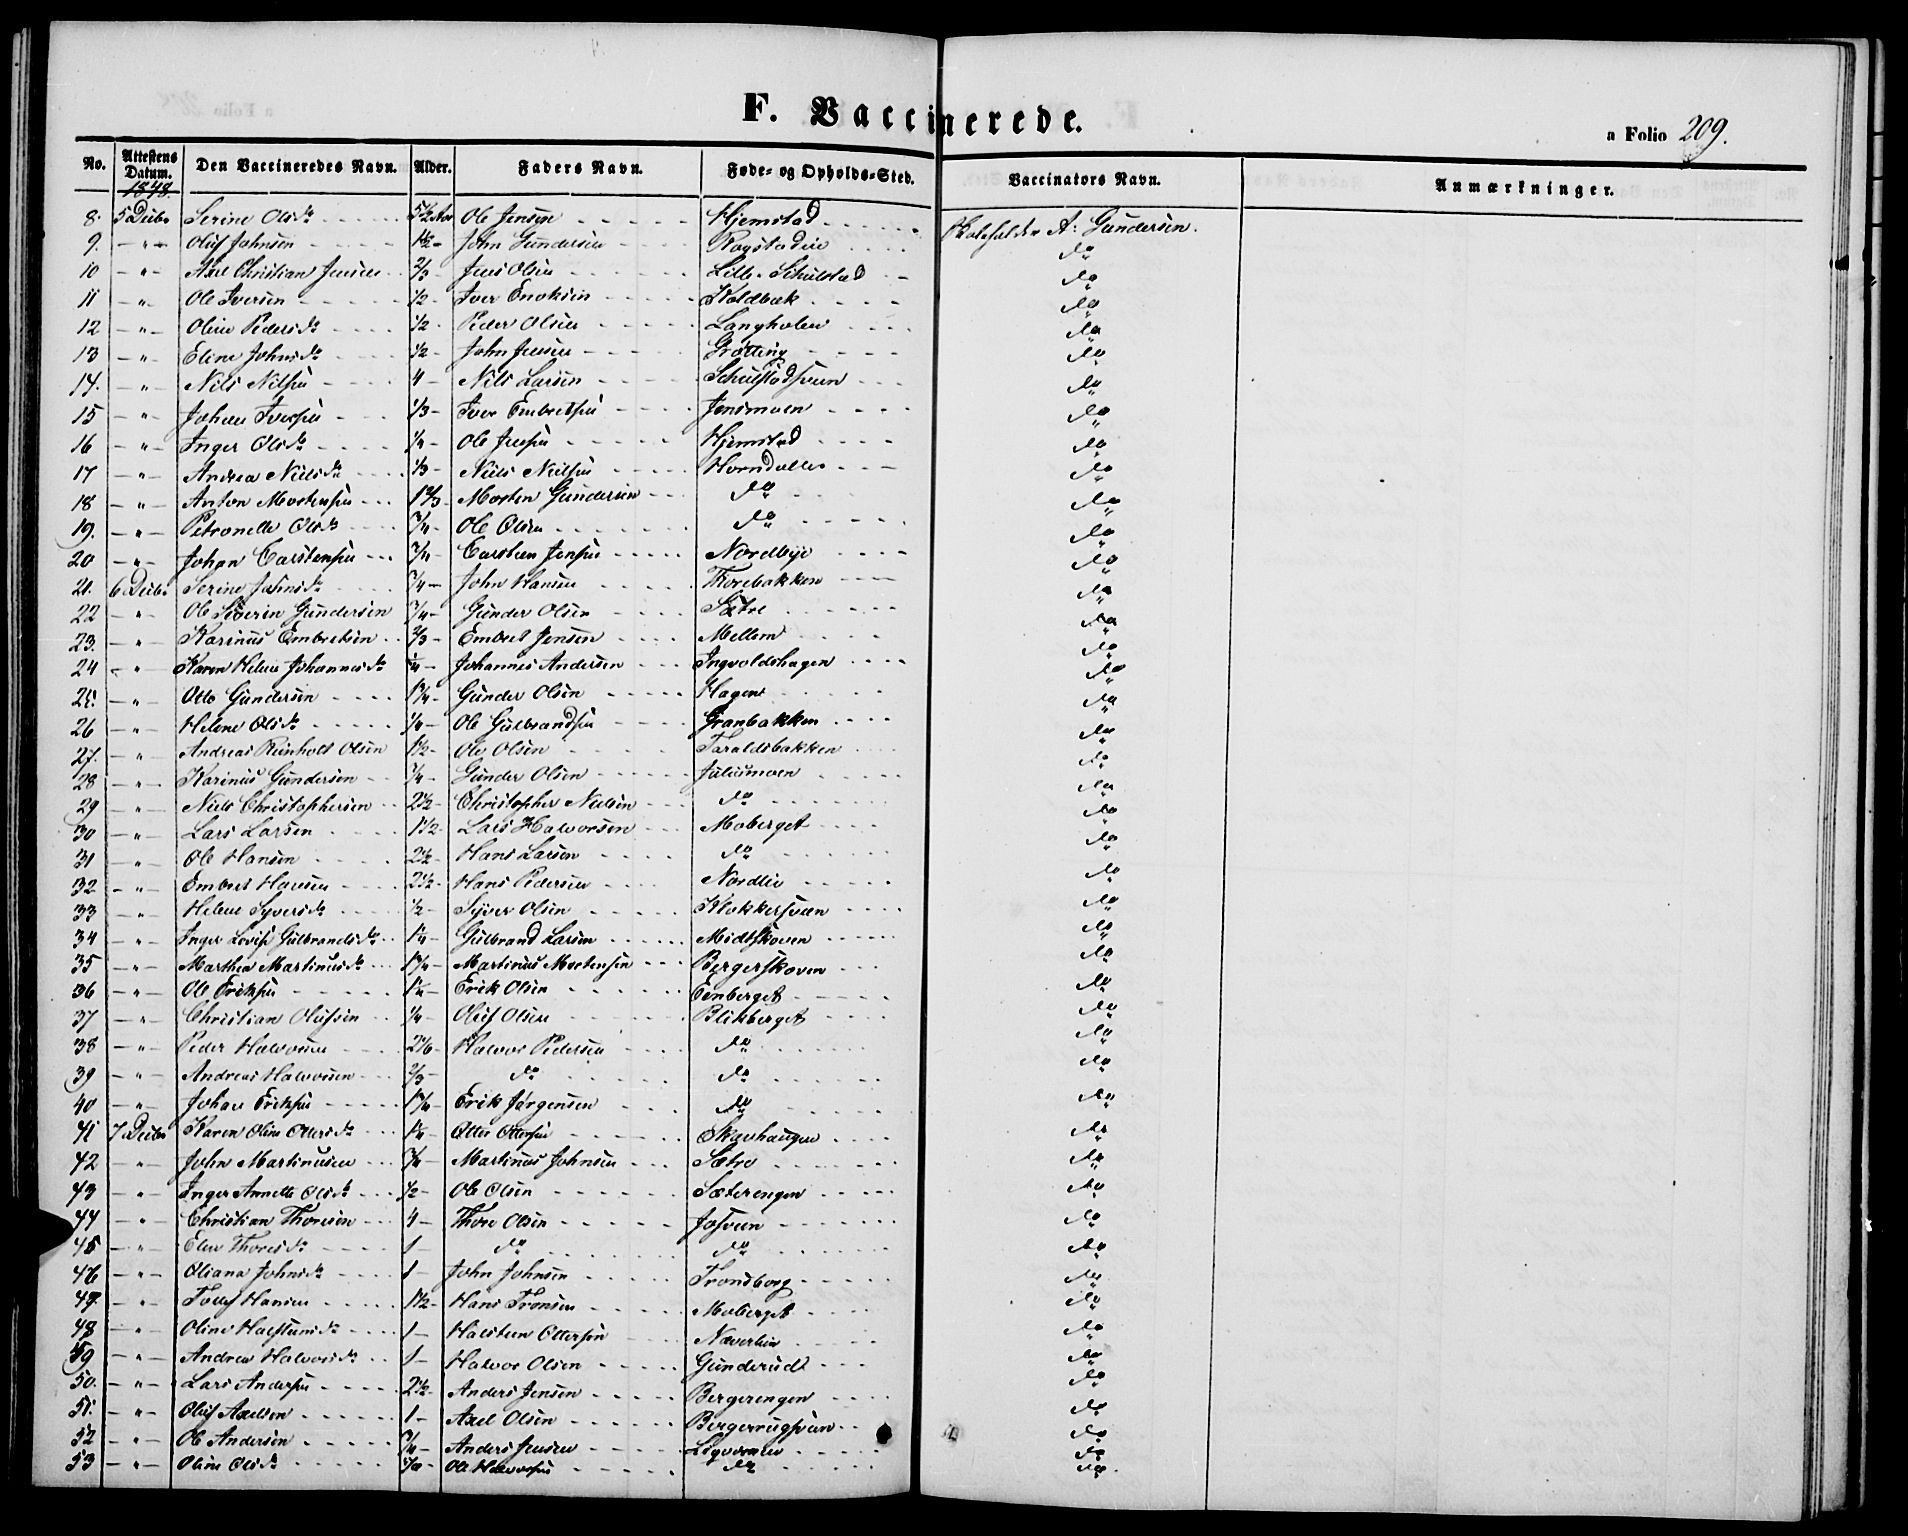 F. Vaccinerede.
a Folio 209.
No. Attestens Datum. Den Vaccineredes Navn. Alder. Faders Navn. Føde- og Opholds-Sted. Vaccinators Navn. Anmærkninger.
1848.
8. 5 Decbr Serine Olsdr 5½ Aar Ole Jensen Hjemstad A: Gundersen.
9. " Oluf Johnsen 1½ John Gundersen Rogstadeie do
10 " Axel Christian Jensen 2/3 Jens Olsen Lille Schulstad do
11 " Ole Iversen ½ Iver Enoksen Koldbæk do
12 " Oline Pedersdr ½ Peder Olsen Langholen do
13 " Eline Johnsdr ½ John Jensen Grøtting do
14. " Nils Nilsen 4 Nils Larsen Schulstadsveen do
15 " Johan Iversen 1/3 Iver Embretsen Jensmoen do
16 " Inger Olsdr ¼ Ole Jensen Hjemstad do
17 " Andrea Nielsdr 1/3 Niels Nielsen Horndalen do
18 " Anton Mortensen 1 2/3 Morten Gundersen do do
19. " Petronelle Olsdr ¾ Ole Olsen do do
20 " Johan Carstensen ¾ Carsten Jensen Nordbye do
21. 6 Decbr Serine Johnsdr ¾ John Hansen Thorebakken do
22 " Ole Siverin Gundersen ¾ Gunder Olsen Sætre do
23. " Karinus Embretsen 2/3 Embret Jensen Mellem do
24 " Karen Helene Johannesdr ¼ Johannes Andersen Ingvoldshagen do
25. " Otto Gundersen 1¾ Gunder Olsen Hagen do
26 " Helene Olsdr ¼ Ole Gulbrandsen Granbakken do
27. " Andreas Reinholt Olsen 1½ Ole Olsen Taraldsbakken do
28 " Karinus Gundersen ¾ Gunder Olsen Juliusmoen do
29 " Niels Christophersen 2½ Christopher Nielsen do do
30 " Lars Larsen 1½ Lars Halvorsen Moberget do
31 " Ole Hansen 2½ Hans Larsen do do
32 " Embret Hansen 2½ Hans Pedersen Nordlie do
33 " Helene Syversdr ½ Syver Olsen Klokkersveen do
34 " Inger Lovise Gulbrandsdr 1¼ Gulbrand Larsen Midtskoven do
35 " Marthea Martinusdr 1¾ Martinus Mortensen Bergerskoven do
36 " Ole Eriksen 1¼ Erik Olsen Eenberget do
37 " Christian Olufsen ¼ Oluf Olsen Blikberget do
38 " Peder Halvorsen Halvor Pedersen do do
39 " Andreas Halvorsen 2/3 do do do
40 " Johan Eriksen 1¾ Erik Jørgensen do do
41 7 Decbr Karen Oline Ottersdr 1¼ Otter Ottersen Skavhaugen do
42 " John Martinusen ¾ Martinus Johnsen Sætre do
43 " Inger Annette Olsdr ½ Ole Olsen Sæterengen do
44 " Christian Thoresen 4 Thore Olsen Josveen do
45 " Elen Thoresdr 1 do do do
46 " Oliana Johnsdr 1 John Johnsen Trondborg do
47. " Tollef Hansen 1½ Hans Tronsen Moberget do
48 " Oline Halstensdr 1 Halsteen Ottersen Næverlien do
49 " Andrea Halvorsdr 1 Halvor Olsen Gunderud do
50. " Lars Andersen 2½ Anders Jensen Bergerengen do
51. " Oluf Axelsen 1 Axel Olsen Bergerrugsveen do
52 " Ole Andersen ¾ Anders Jensen do
53 " Oline Olsdr Ole Halvorsen do do